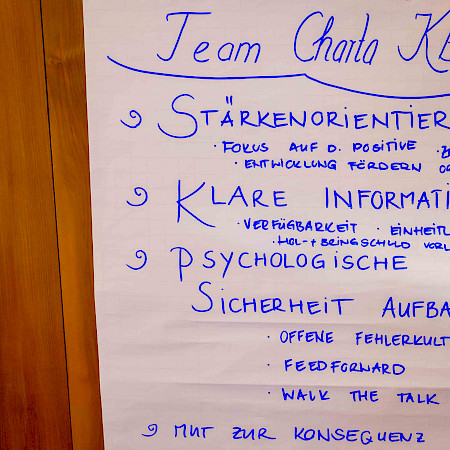 Team Charta
STÄRKENORIENTIER
· FOKUS AUF D. POSITIVE
· ENTWICKLUNG FÖRDERN
KLARE INFORMATI
· VERFÜGBARKEIT · EINHEITL
· HOL- + BRINGSCHULD VORL
PSYCHOLOGISCHE
SICHERHEIT AUFBA
· OFFENE FEHLERKULT
· FEEDFORWARD
· WALK THE TALK
MUT ZUR KONSEQUENZ